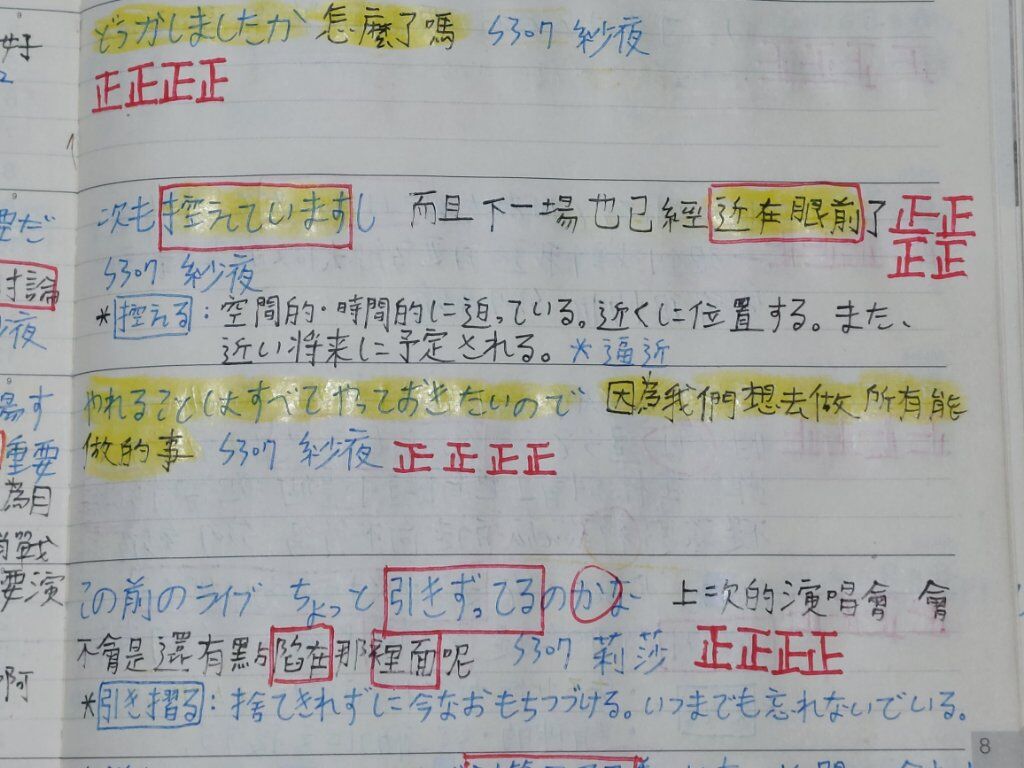 どうかしましたか 怎麼了嗎 S307 紗夜
正正正正
次も控えていますし 而且下一場也已經近在眼前了 正正
正正
S307 紗夜
*控える:空間的・時間的に迫っている。近くに位置する。また、
近い将来に予定される。*逼近
やれることはすべてやっておきたいので 因為我們想去做所有能
做的事 S307 紗夜 正正正正
この前のライブ ちょっと引きずってるのかな 上次的演唱會 會
不會是還有點陷在那裡面呢 S307 莉莎 正正正正
*引き摺る:捨てきれずに今なおもちつづける。いつまでも忘れないでいる。
8
好
討論
重要
為目
要演
啊